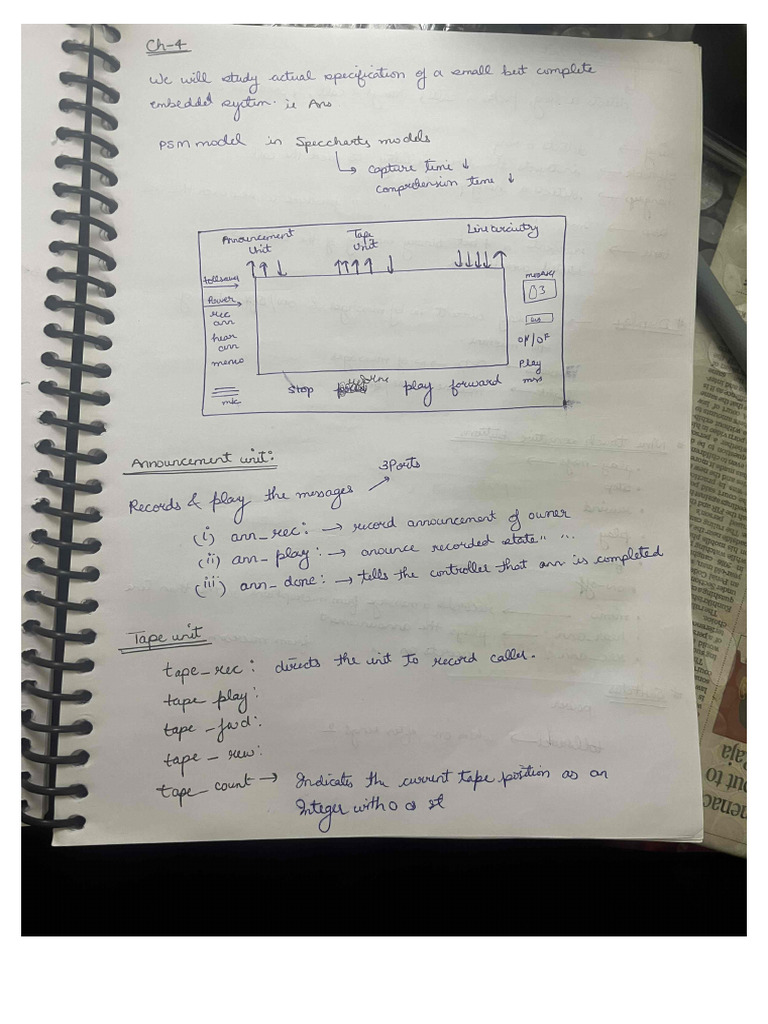 Ch-4
We will study actual specification of a small but complete
embedded system. ie Ans
PSM model in Speccharts models
capture time ↓
comprehension time ↓
Announcement Unit
Tape Unit
Line circuitry
tollsaver
Power
rec ann
hear ann
memo
mic
messages
03
ON/OF
Play msgs
stop
play
forward
Announcement unit:
3 Ports
Records & play the messages
(i) ann_rec: → record announcement of owner
(ii) ann-play: → anounce recorded state" "
(iii) ann-done: → tells the controller that ann is completed
Tape unit
tape-rec: directs the unit to record caller.
tape play:
tape-fwd:
tape-rew:
tape_count → Indicates the current tape position as an
Integer with 0 as st